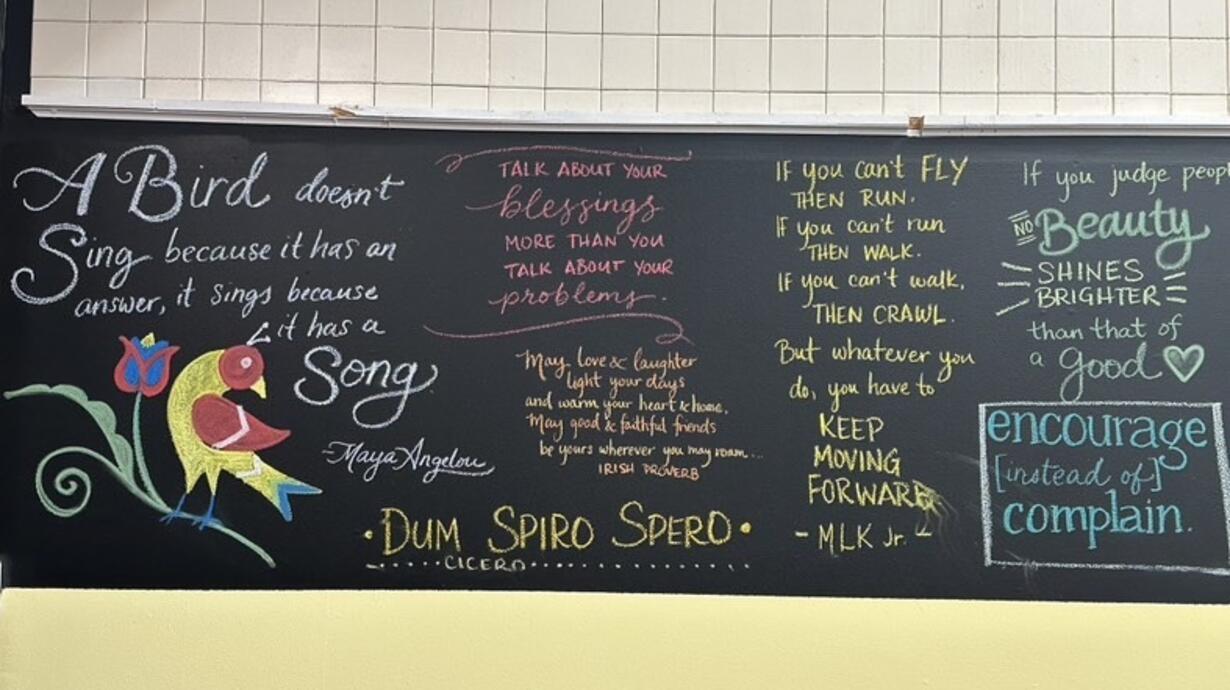 A Bird doesn't
Sing because it has an
answer, it sings because
it has a
Song.
-Maya Angelou
TALK ABOUT YOUR
blessings
MORE THAN YOU
TALK ABOUT YOUR
problems.
May love & laughter
light your days
and warm your heart & home.
May good & faithful friends
be yours wherever you may roam...
IRISH PROVERB
•DUM SPIRO SPERO•
CICERO
If you can't FLY
THEN RUN.
If you can't run
THEN WALK.
If you can't walk,
THEN CRAWL.
But whatever you
do, you have to
KEEP
MOVING
FORWARD
- MLK Jr. -
If you judge peopl
NO Beauty
SHINES
BRIGHTER
than that of
a good ♡
encourage
[instead of]
complain.